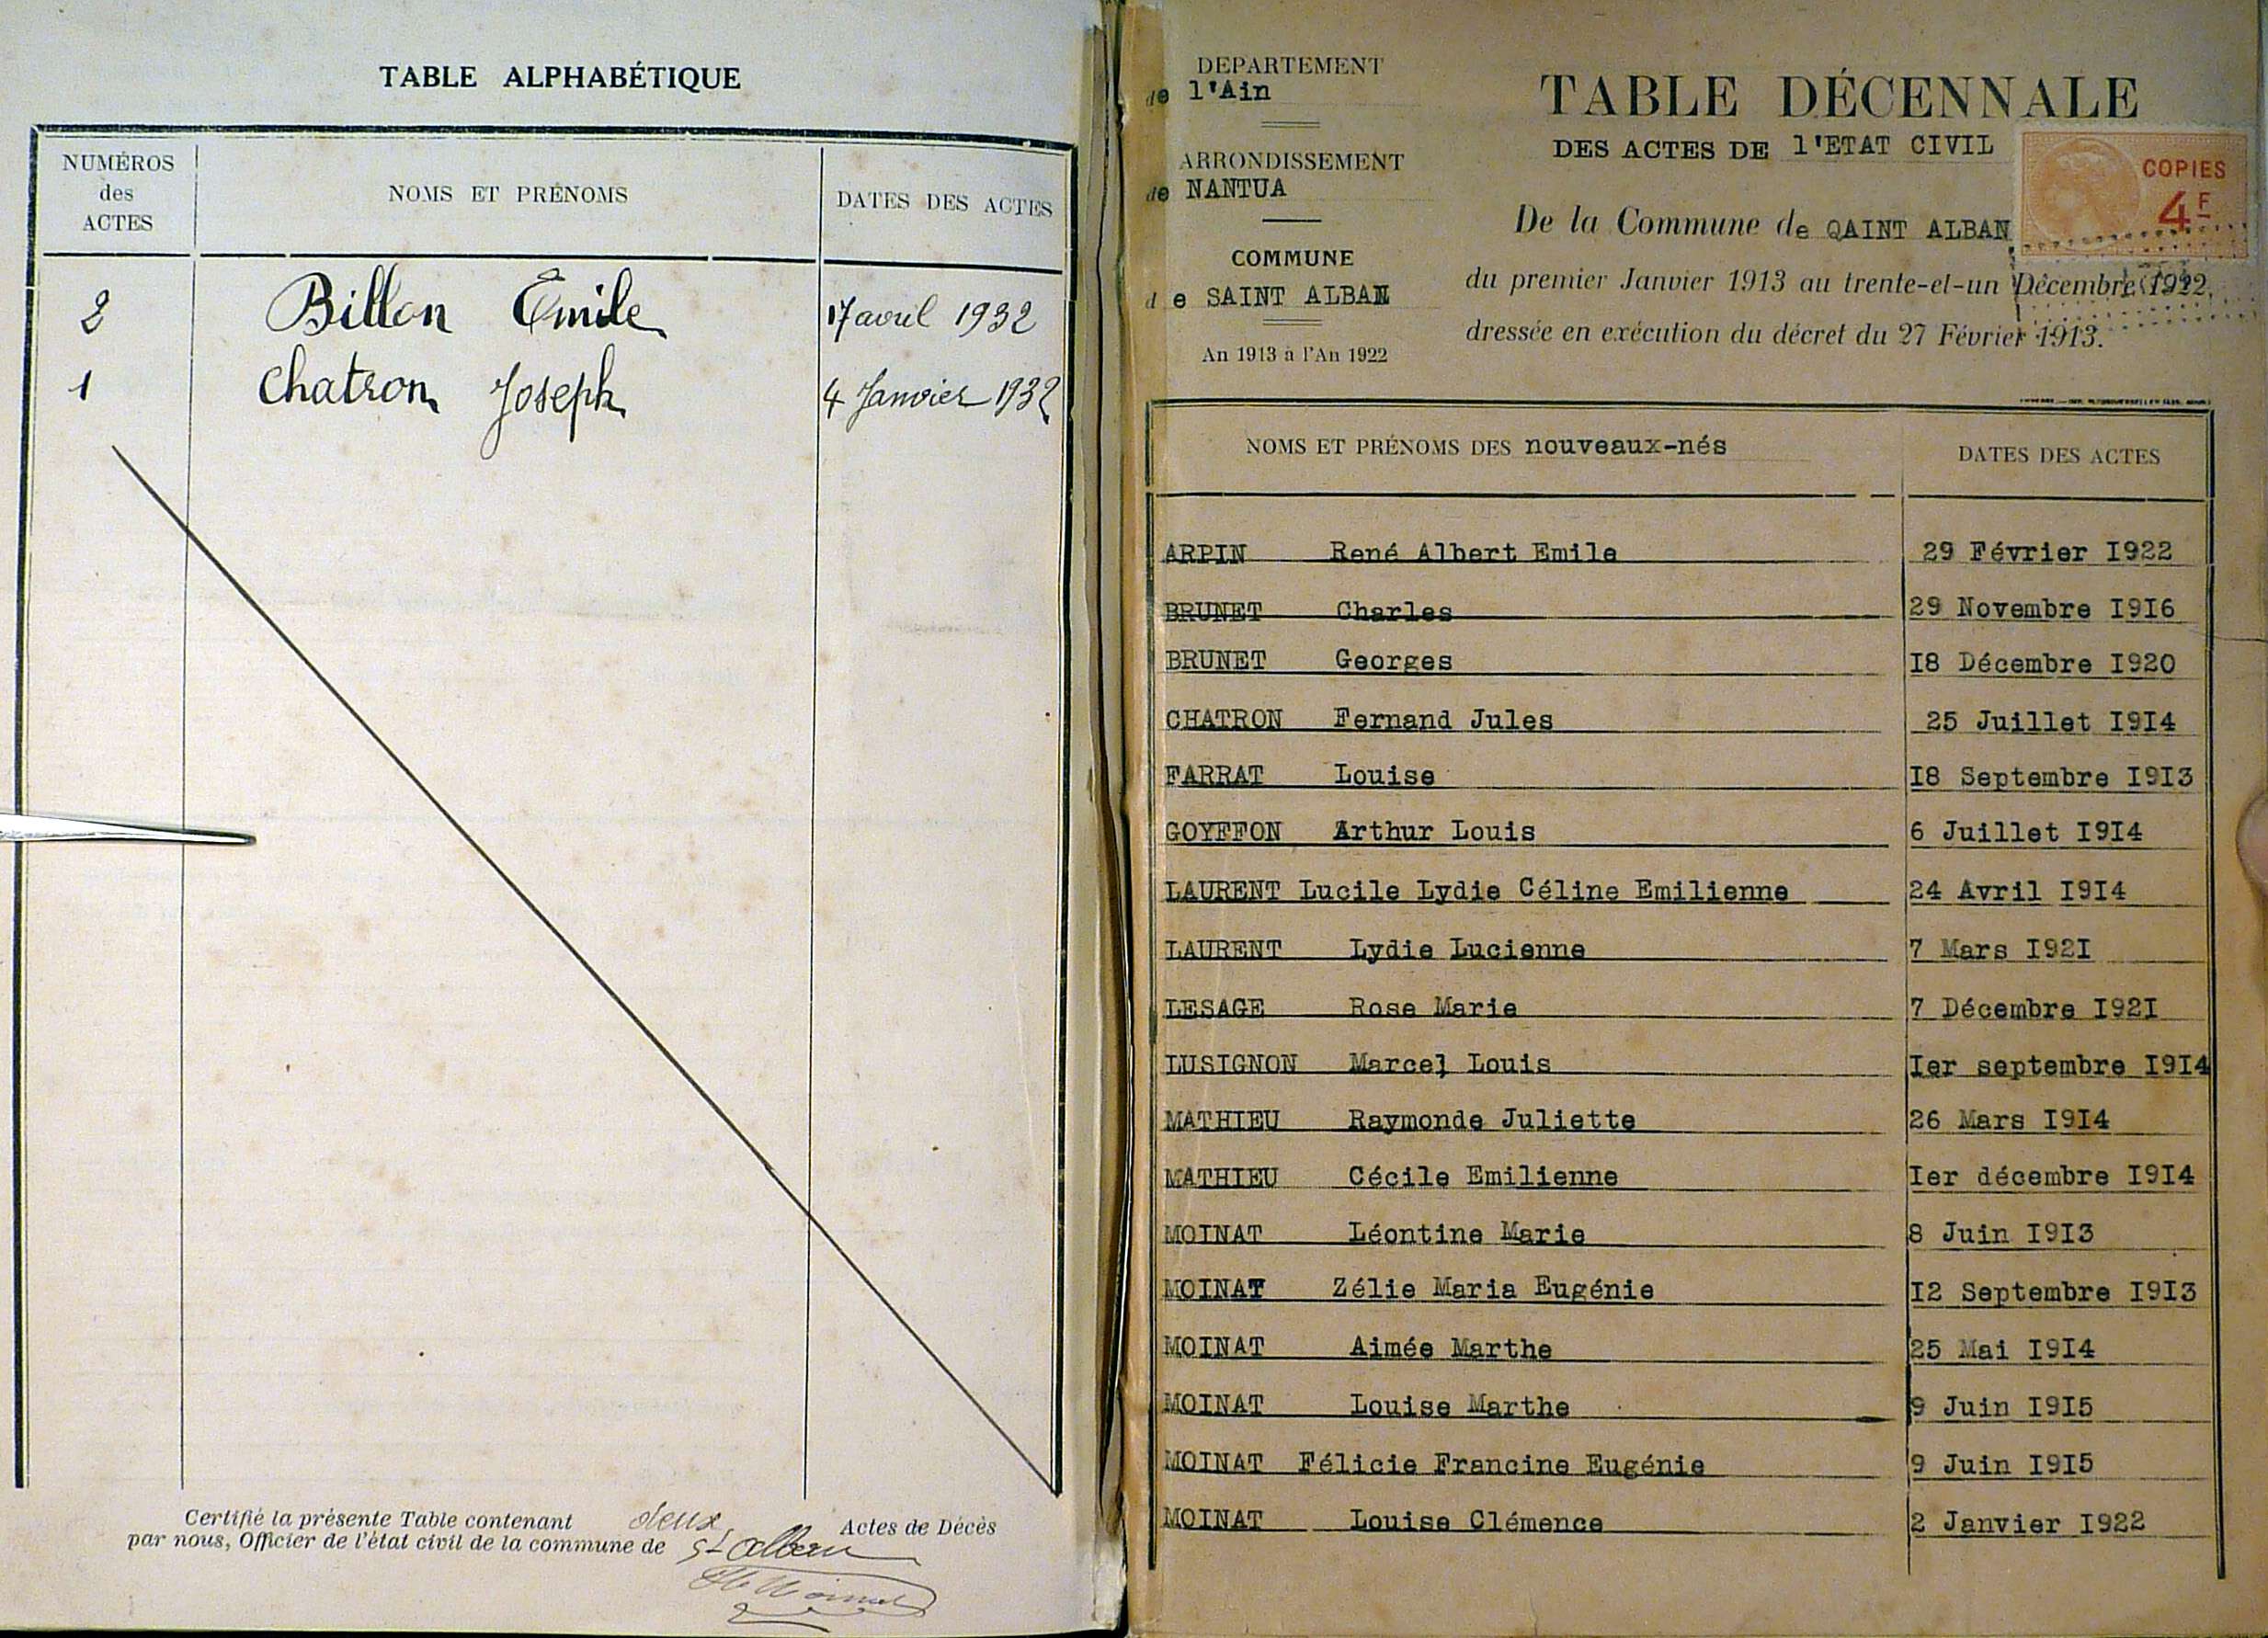 TABLE ALPHABÉTIQUE
NUMÉROS des ACTES
NOMS ET PRÉNOMS
DATES DES ACTES
2 Billon Émile 17 avril 1932
1 Chatron Joseph 4 Janvier 1932
Certifié la présente Table contenant deux Actes de Décès
par nous, Officier de l'état civil de la commune de St Alban
DEPARTEMENT
de l'Ain
ARRONDISSEMENT
de NANTUA
COMMUNE
de SAINT ALBAN
An 1913 à l'An 1922
TABLE DÉCENNALE
DES ACTES DE l'ETAT CIVIL
De la Commune de QAINT ALBAN
du premier Janvier 1913 au trente-et-un Décembre 1922,
dressée en exécution du décret du 27 Février 1913.
COPIES
4F
NOMS ET PRÉNOMS DES nouveaux-nés
DATES DES ACTES
ARPIN René Albert Emile 29 Février I922
BRUNET Charles 29 Novembre I9I6
BRUNET Georges I8 Décembre I920
CHATRON Fernand Jules 25 Juillet I9I4
FARRAT Louise I8 Septembre I9I3
GOYFFON Arthur Louis 6 Juillet I9I4
LAURENT Lucile Lydie Céline Emilienne 24 Avril I9I4
LAURENT Lydie Lucienne 7 Mars I92I
LESAGE Rose Marie 7 Décembre I92I
LUSIGNON Marcel Louis Ier septembre I9I4
MATHIEU Raymonde Juliette 26 Mars I9I4
MATHIEU Cécile Emilienne Ier décembre I9I4
MOINAT Léontine Marie 8 Juin I9I3
MOINAT Zélie Maria Eugénie I2 Septembre I9I3
MOINAT Aimée Marthe 25 Mai I9I4
MOINAT Louise Marthe 9 Juin I9I5
MOINAT Félicie Francine Eugénie 9 Juin I9I5
MOINAT Louise Clémence 2 Janvier I922